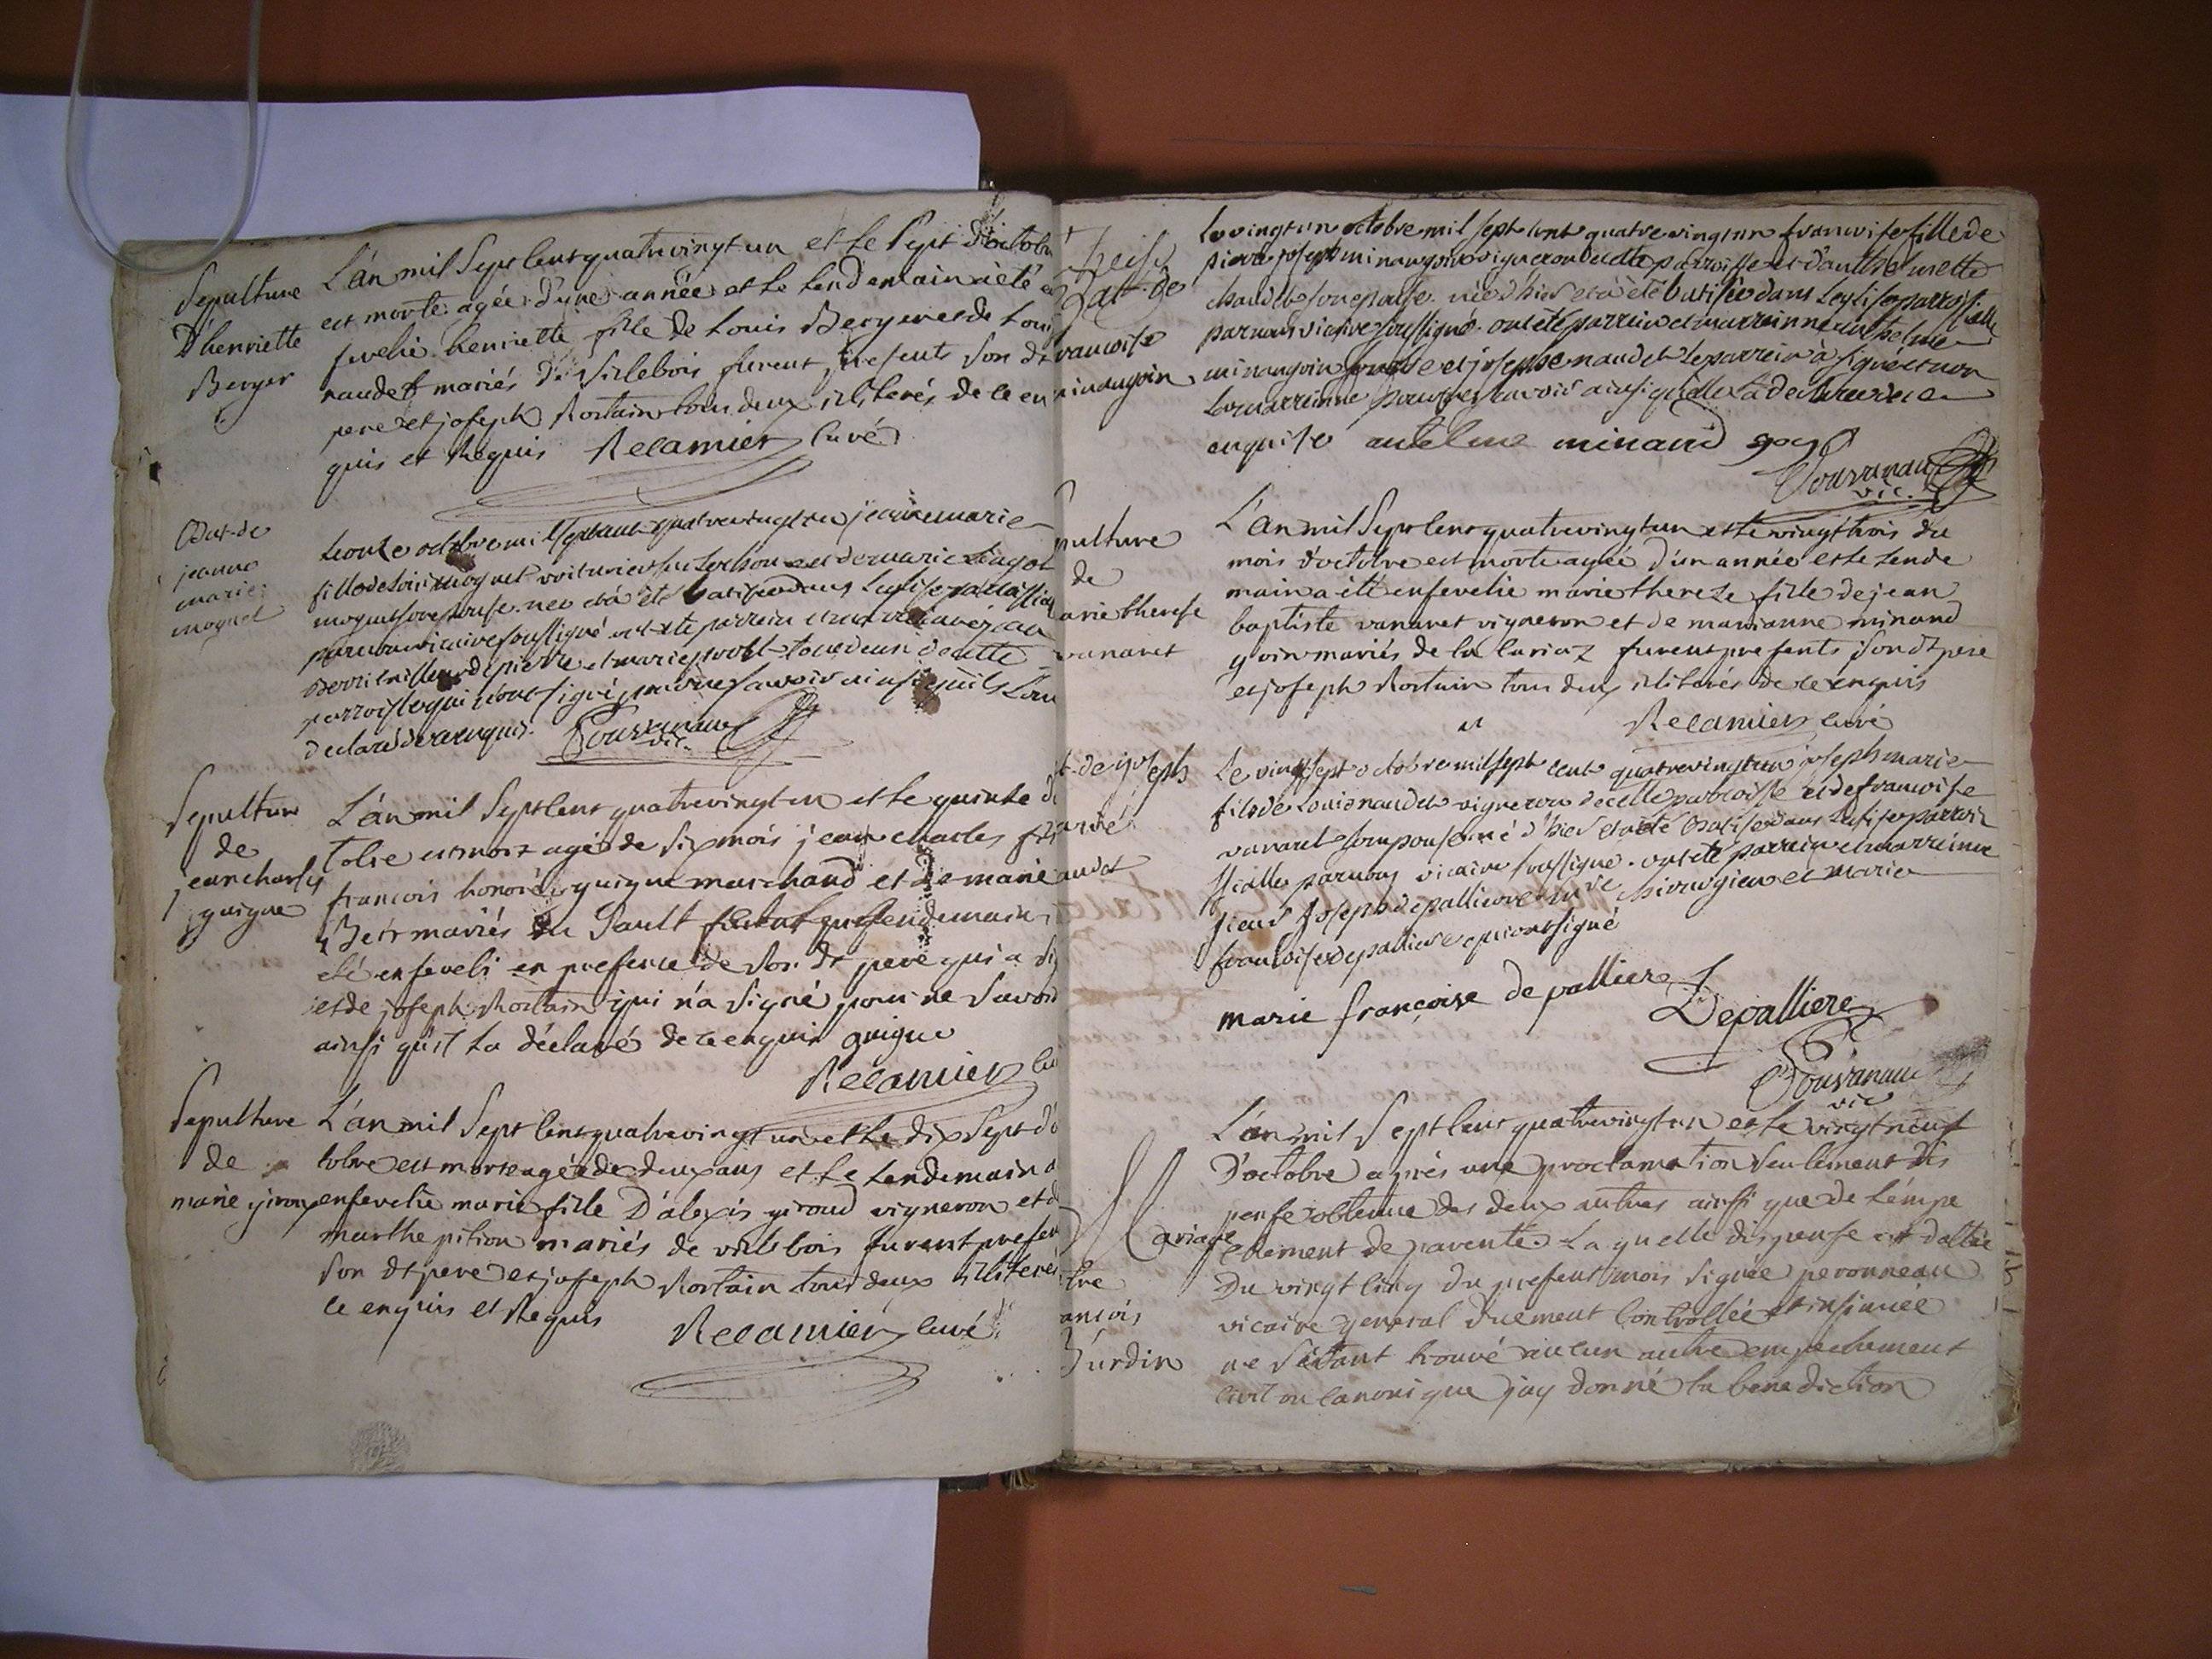 Sepulture
D'henriette
Berger
L'an mil Sept Cent quatrevingt un et le Sept d'octobre
est morte agée d'une année et le lendemain a été
sevelie henriette fille de Louis Berger et de
naudet mariés de Villebois furent presents Son dt
pere et joseph Rostain tous deux illiterés de ce en
quis et Requis Recamier Curé
Bat. de
jeanne
marie
moquet
Le onze octobre mil Sept cent quatrevingt un jeanne marie
fille de Loüis moquet voiturier sur le rhône et de marie
moquet son epouse. née et a été batisée dans L'eglise paroissial
par nous vicaire soussigné ont été parrain et
pierre et marie tous deux de cette
parroisse qui n'ont signé pour ne savoir ainsi qu'ils L'ont
declaré de ce enquis.
vic.
Sepulture
de
jean charles
guigue
L'an mil Sept Cent quatrevingt un et le quinze d'
tobre est mort agé de Six mois jean charles fils
francois honoré guigue marchand et de marie
mariés du Sault lendemain
eté enseveli en presence de Son dt pere qui a
et de joseph Rostain qui n'a Signé pour ne Savoir
ainsi qu'il l'a déclaré de ce enquis guigue
Recamier
Sepulture
de
marie giroud
L'an mil Sept Cent quatrevingt un et le dix Sept d'o
tobre est morte agée de deux ans et le lendemain a
ensevelie marie fille D'alexis giroud vigneron et d
marthe pition mariés de villebois furent presen
Son dt pere et joseph Rostain tous deux illiterés
ce enquis et Requis Recamier curé
Bat. de
francoise
minangoin
Le vingt un octobre mil sept cent quatre vingt un francoise fille de
pierre joseph minangoin vigneron de cette parroisse et d'anthelmette
naudet son epouse. née d'hier et a été batisée dans L'eglise parroissialle
par nous vicaire soussigné. ont été parrein et marreinne anthelme
minangoin et josephe naudet Le parrein à signé et non
La marreinne pour ne savoir ainsi qu'elle L'a declaré de ce
enquise antelme minand goy
vic.
pulture
de
arie therese
vanaret
L'an mil Sept Cent quatrevingt un et le vingt trois du
mois d'octobre est morte agée d'un année et le lende
main a été ensevelie marie thereze fille de jean
baptiste vanaret vigneron et de marianne minand
goin mariés de la furent presents Son dt pere
et joseph Rostain tous deux illiterés de ce enquis
Recamier curé
t. de joseph
marie
naudet
Le vingt sept octobre mil sept cent quatrevingt un joseph marie
fils de Louis naudet vigneron de cette parroisse et de francoise
vanaret son epouse né d'hier et a été batisé dans L'eglise parrois
sialle par nous vicaire soussigné. ont été parrain et marreinne
sieur joseph depalliere chirurgien et marie
francoise depalliere qui ont signé
marie françoise de palliere
Depalliere
vic
Mariage
ançois
Jurdin
L'an mil Sept Cent quatrevingt un et le vingt neuf
D'octobre après une proclamation Seulement dis
pense obtenue des deux autres ainsi que de l'empe
chement de parenté. La quelle dispense est dattée
Du vingt Cinq du present mois signée peronneau
vicaire general duement Controllée et insinuée
ne S'étant trouvé aucun autre empechement
Civil ou Canonique j'ay donné la benediction